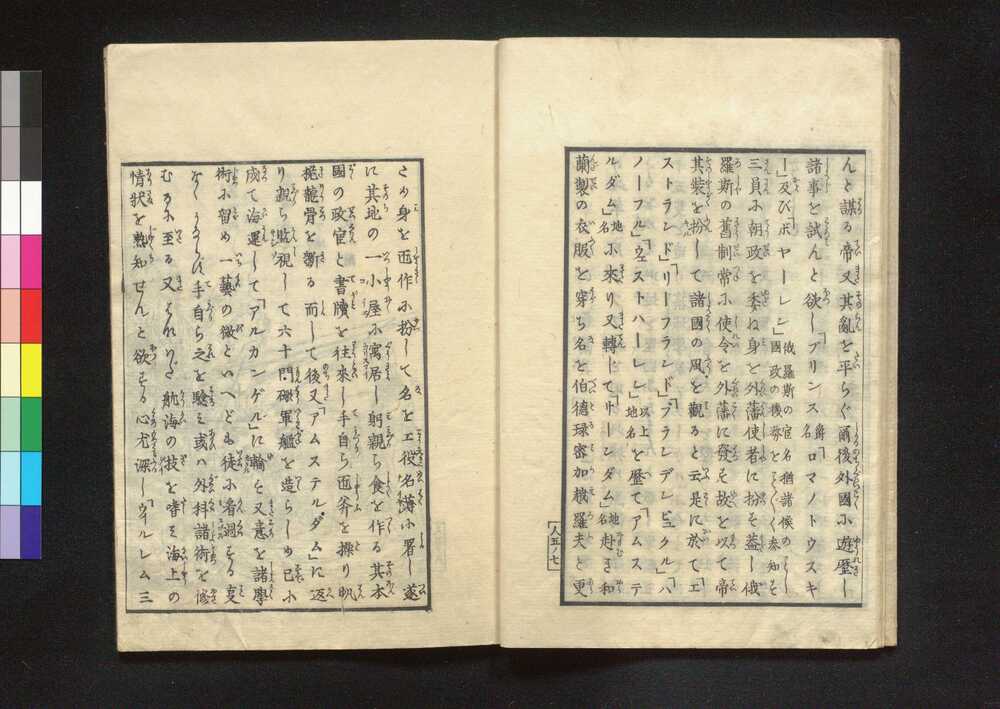 んと謀る帝又其亂を平らぐ爾後外國ニ遊歴し
諸事を試んと欲し「プリンス爵名ロマノトウスキ
ー」及び「ボヤーレン」俄羅斯の官名猶諸侯の國政の機務をことごとく參知そ
三員ニ朝政を委ね身を外藩使者に扮そ蓋し俄
羅斯の舊制常ニ使令を外藩に發そ故を以て帝
其裝を扮して諸國の風を觀ると云是に於て「エ
ストランド」「リーフランド」「ブランデビュルク」「ハ
ノーフル」「ウェストハーレン」以上地名を歴て「アムステ
ルダム」地名ニ來り又轉じて「サーンダム」地名赴き和
蘭製の衣服を穿ち名を伯德琭密加越羅夫と更
人五ノ七
さめ身を匠作ニ扮して名を工役名簿ニ署し遂
に其地の一小屋ニ寓居し躬親ら食を作る其本
國の政官と書牘を往來し手自ら匠斧を操り帆
桅龍骨を斲る而して後又「アムステルダム」に返
り親ら監視して六十門礮軍艦を造らしめ已ニ
成て海運して「アルカンゲル」に輸を又意を諸學
術ニ留め一藝の微といへども徒ニ看過そる事
なく手自ら之を驗ミ或ハ外科諸術を
むるニ至る又航海の技を嗜ミ海上の
情状を熟知せんと欲そる心尤深し「ウイルレム三